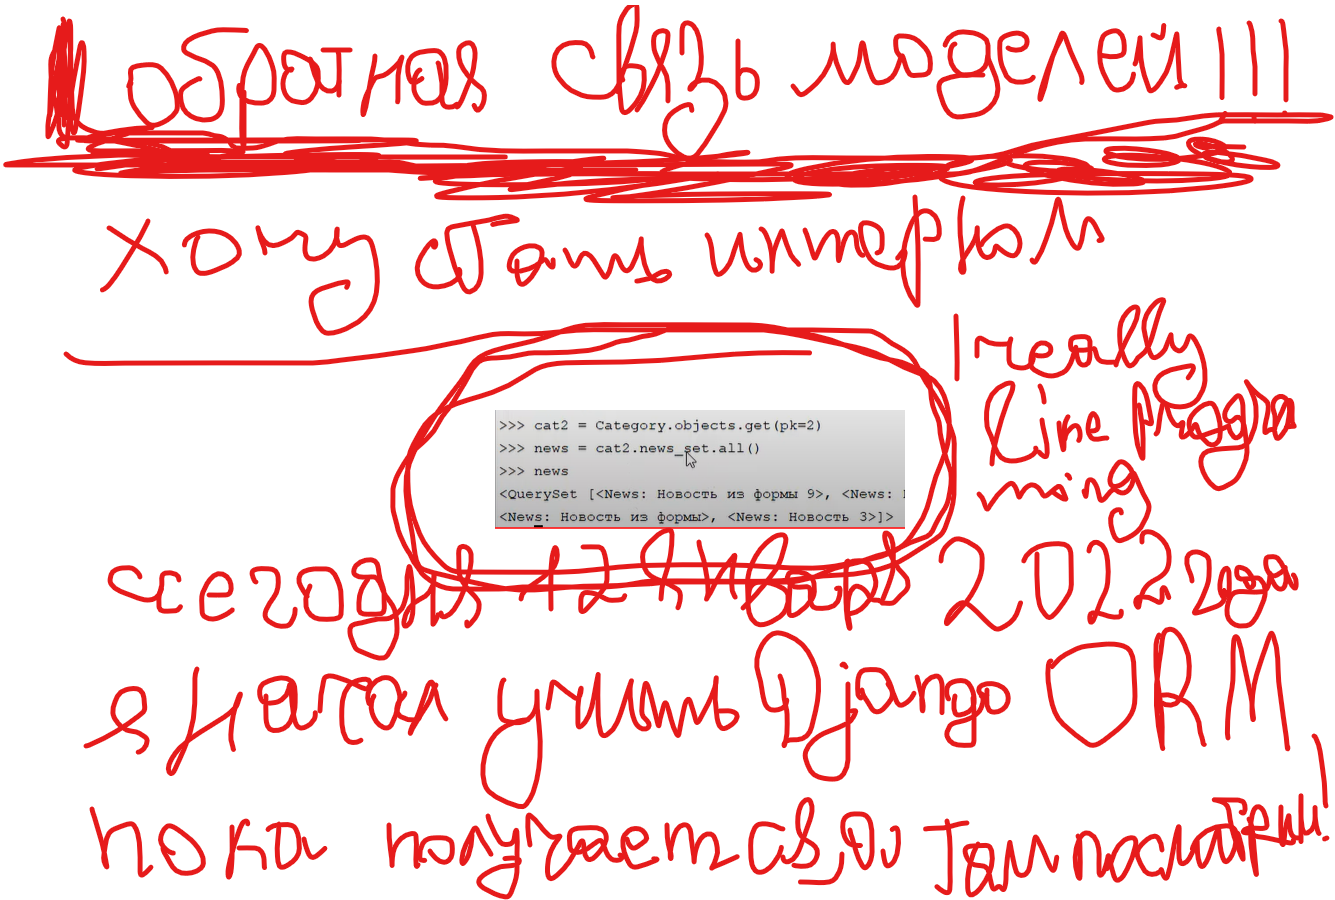 обратная связь моделей!!!
хочу стать интерном
I really
like progra
ming
>>> cat2 = Category.objects.get(pk=2)
>>> news = cat2.news_set.all()
>>> news
<QuerySet [<News: Новость из формы 9>, <News:
<News: Новость из формы>, <News: Новость 3>]>
сегодня 12 января 2022 года
я начал учить Django ORM
пока получается, но там посмотрим!